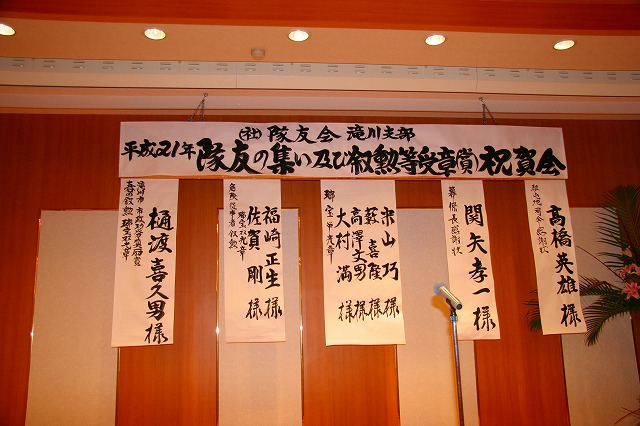 (社)隊友会 滝川支部
平成21年 隊友の集い及び叙勲等受章(賞)祝賀会
髙橋英雄様
幕僚長感謝状
関矢孝一様
瑞宝単光章
米山巧様
藪喜隆様
高澤文男様
大村満様
危険従事者叙勲
瑞宝双光章
福崎正生様
佐賀剛様
喜寿叙勲 瑞宝双光章
樋波喜久男様